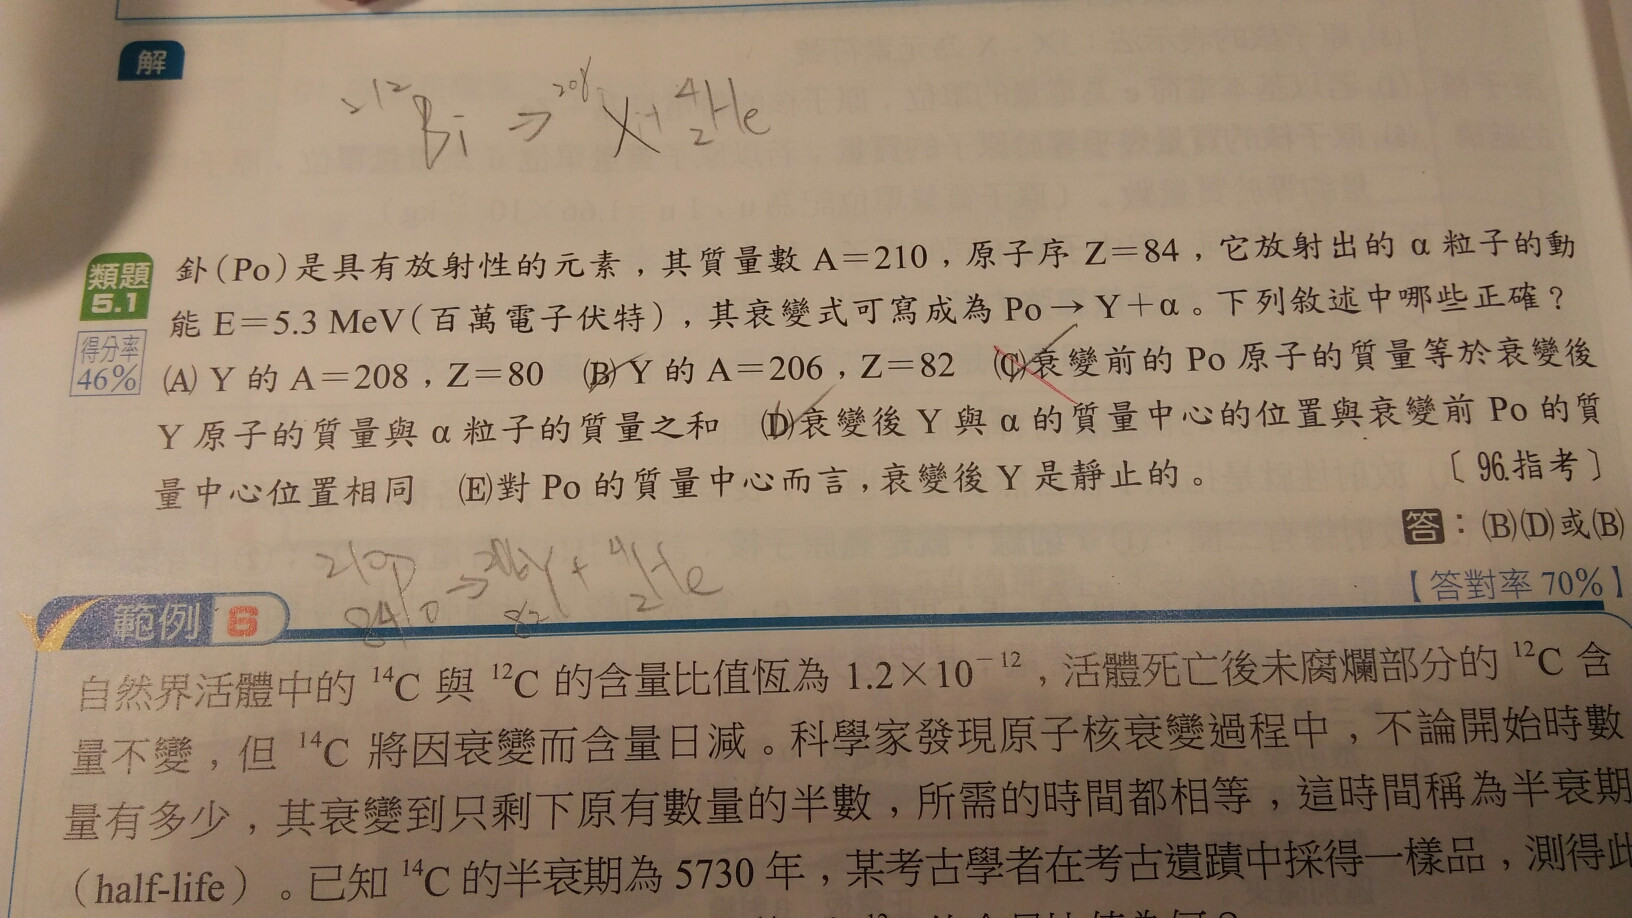 解
²¹²Bi → ²⁰⁸X + ⁴₂He
類題 5.1
釙(Po)是具有放射性的元素,其質量數 A=210,原子序 Z=84,它放射出的 α 粒子的動
能 E=5.3 MeV(百萬電子伏特),其衰變式可寫成為 Po → Y+α。下列敘述中哪些正確?
得分率 46%
(A) Y 的 A=208,Z=80 (B) Y 的 A=206,Z=82 (C)衰變前的 Po 原子的質量等於衰變後
Y 原子的質量與 α 粒子的質量之和 (D)衰變後 Y 與 α 的質量中心的位置與衰變前 Po 的質
量中心位置相同 (E)對 Po 的質量中心而言,衰變後 Y 是靜止的。 〔96.指考〕
答:(B)(D)或(B)
²¹⁰₈₄Po → ²⁰⁶₈₂Y + ⁴₂He
【答對率 70%】
範例 6
自然界活體中的 ¹⁴C 與 ¹²C 的含量比值恆為 1.2×10⁻¹²,活體死亡後未腐爛部分的 ¹²C 含
量不變,但 ¹⁴C 將因衰變而含量日減。科學家發現原子核衰變過程中,不論開始時數
量有多少,其衰變到只剩下原有數量的半數,所需的時間都相等,這時間稱為半衰期
(half-life)。已知 ¹⁴C 的半衰期為 5730 年,某考古學者在考古遺蹟中採得一樣品,測得此